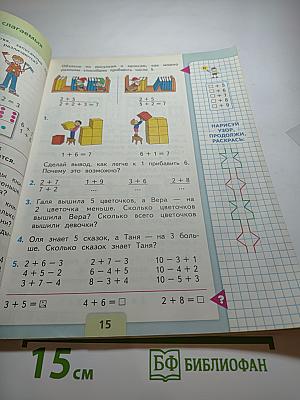 слагаемых
Объясни по рисункам и записям, как можно
разными способами прибавить число 5.
2 + 5
2 + 2 + 3 = 7
2 + 5
5 + 2 = 7
1.
1 + 6 = ?
6 + 1 = ?
Сделай вывод, как легче к 1 прибавить 6.
Почему это возможно?
2. 2 + 7 1 + 9 3 + 6 2 + 8
7 + 2 ... ... ...
3. Галя вышила 5 цветочков, а Вера — на
2 цветочка меньше. Сколько цветочков
вышила Вера? Сколько всего цветочков
вышили девочки?
4. Оля знает 5 сказок, а Таня — на 3 боль-
ше. Сколько сказок знает Таня?
5. 2 + 6 − 3 2 + 7 − 3 10 − 3 + 1
4 + 5 − 2 6 − 4 + 5 10 − 4 + 2
3 + 7 − 6 8 − 3 + 4 10 − 5 + 3
3 + 5 = 4 + 6 = 2 + 8 =
?
15
НАРИСУЙ
УЗОР,
ПРОДОЛЖИ,
РАСКРАСЬ.
15 см
БФ БИБЛИОФАН